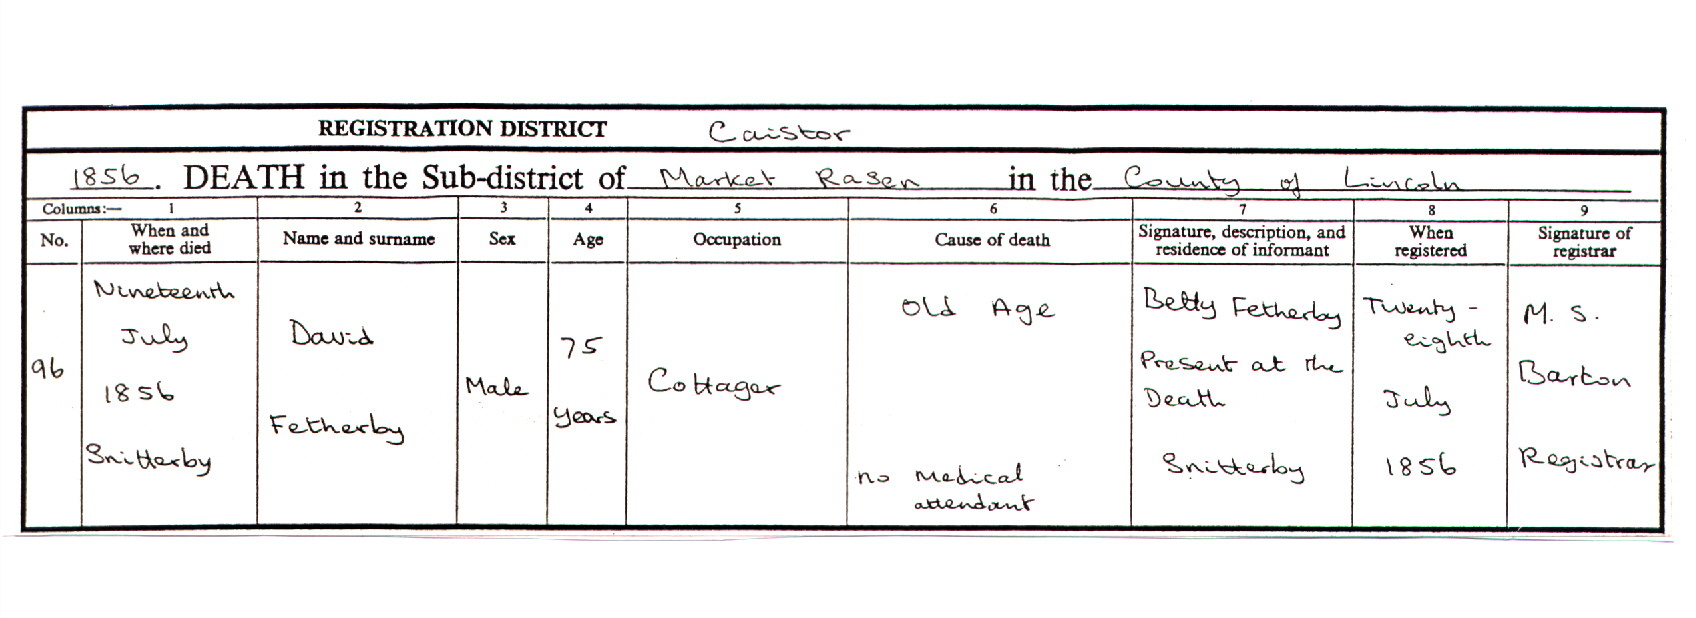 REGISTRATION DISTRICT Caistor
1856. DEATH in the Sub-district of Market Rasen in the County of Lincoln
Columns:— 1 2 3 4 5 6 7 8 9
No.
When and
where died
Name and surname
Sex
Age
Occupation
Cause of death
Signature, description, and
residence of informant
When
registered
Signature of
registrar
96
Nineteenth
July
1856
Snitterby
David
Fetherby
Male
75
years
Cottager
Old Age
no Medical
attendant
Betty Fetherby
Present at the
Death
Snitterby
Twenty-
eighth
July
1856
M. S.
Barton
Registrar